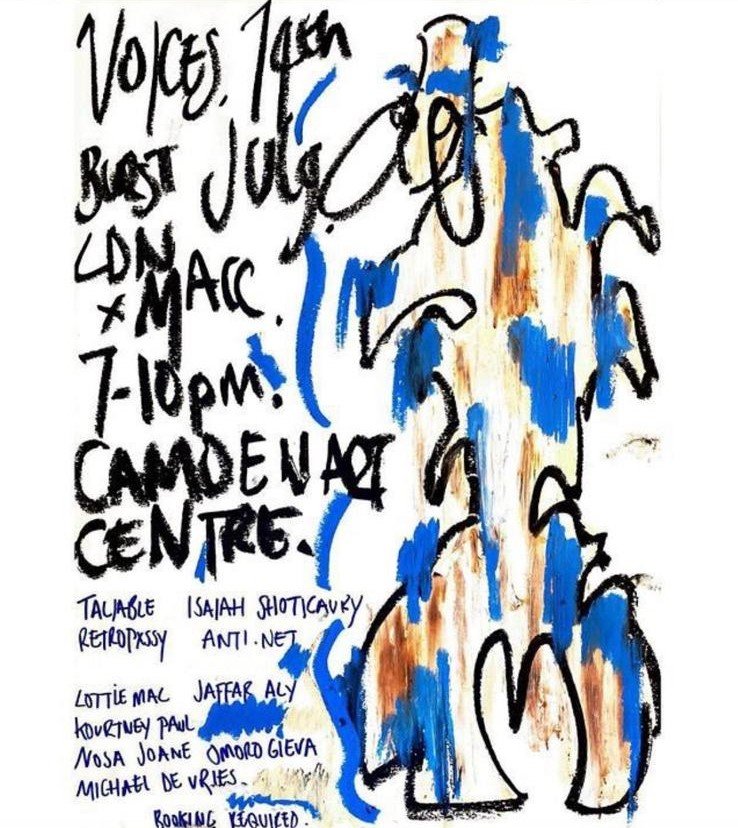 VOICES. 14th
BURST July.
LDN
x MACC.
7-10pm.
CAMDEN ART
CENTRE.
TALIABLE ISAIAH SHOTICAURY
RETROPXSSY ANTI.NET
LOTTIE MAC JAFFAR ALY
KOURTNEY PAUL
NOSA JOANE OMOROGIEVA
MICHAEL DE VRIES.
BOOKING REQUIRED.